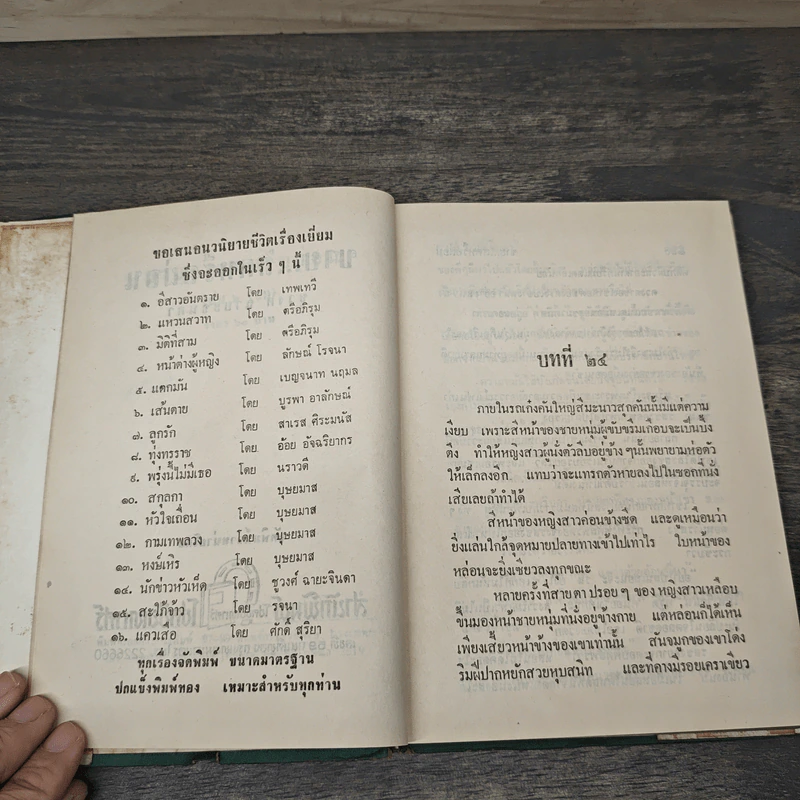 ขอเสนอนวนิยายชีวิตเรื่องเยี่ยม
ซึ่งจะออกในเร็ว ๆ นี้
๑. อีสาวอันตราย โดย เทพเทวี
๒. แหวนสวาท โดย ตรีอภิรุม
๓. มิติที่สาม โดย ตรีอภิรุม
๔. หน้าต่างผู้หญิง โดย ลักษณ์ โรจนา
๕. แตกมัน โดย เบญจนาท นฤมล
๖. เส้นตาย โดย บูรพา อาลักษณ์
๗. ลูกรัก โดย สาเรส ศิระมนัส
๘. ทุ่งทรราช โดย อ้อย อัจฉริยากร
๙. พรุ่งนี้ไม่มีเธอ โดย นราวดี
๑๐. สกุลกา โดย บุษยมาส
๑๑. หัวใจเถื่อน โดย บุษยมาส
๑๒. กามเทพลวง โดย บุษยมาส
๑๓. หงษ์เหิร โดย บุษยมาส
๑๔. นักข่าวหัวเห็ด โดย ชูวงศ์ ฉายะจินดา
๑๕. สะใภ้จ้าว โดย รจนา
๑๖. แควเสือ โดย ศักดิ์ สุริยา
ทุกเรื่องจัดพิมพ์ ขนาดมาตรฐาน
ปกแข็งพิมพ์ทอง เหมาะสำหรับทุกท่าน
บทที่ ๒๔
ภายในรถเก๋งคันใหญ่สีมะนาวสุกคันนั้นมีแต่ความ
เงียบ เพราะสีหน้าของชายหนุ่มผู้ขับขรึมเกือบจะเป็นบึ้ง
ตึง ทำให้หญิงสาวผู้นั่งตัวลีบอยู่ข้าง ๆ นั้นพยายามห่อตัว
ให้เล็กลงอีก แทบว่าจะแทรกตัวหายลงไปในซอกที่นั่ง
เสียเลยถ้าทำได้
สีหน้าของหญิงสาวค่อนข้างซีด และดูเหมือนว่า
ยิ่งแล่นใกล้จุดหมายปลายทางเข้าไปเท่าไร ใบหน้าของ
หล่อนจะยิ่งเซียวลงทุกขณะ
หลายครั้งที่สายตาปรอย ๆ ของ หญิงสาวเหลือบ
ขึ้นมองหน้าชายหนุ่มที่นั่งอยู่ข้างกาย แต่หล่อนก็ได้เห็น
เพียงเสี้ยวหน้าข้างของเขาเท่านั้น สันจมูกของเขาโด่ง
ริมฝีปากหยักสวยหุบสนิท และที่คางมีรอยเคราเขียว